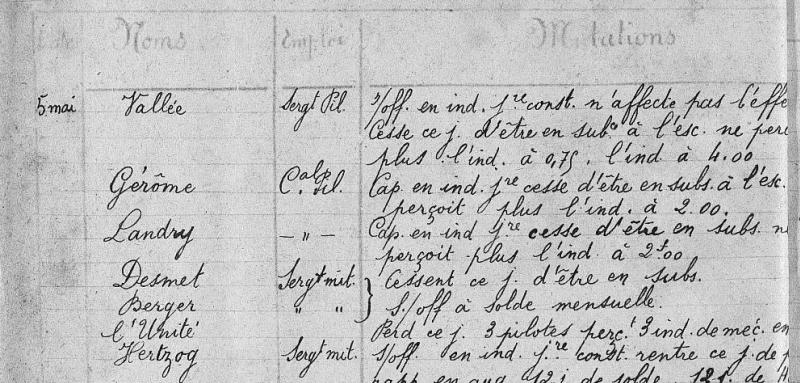 Date Noms Emploi Mutations
5 mai Vallée Sergt Pil. s/off. en ind. jre const. n'affecte pas l'effe
Cesse ce j. d'être en subs à l'esc. ne perç
plus l'ind. à 0,75. l'ind à 4.00
Gérôme Calp. Pil. Cap. en ind. jre cesse d'être en subs. à l'esc.
perçoit plus l'ind. à 2.00.
Landry — " — Cap. en ind jre cesse d'être en subs. n
perçoit plus l'ind à 2f00
Desmet Sergt mit. } Cessent ce j. d'être en subs.
Berger " " S./off à solde mensuelle.
l'Unité Perd ce j. 3 pilotes perçt 3 ind. de méc. en
Hertzog Sergt mit. S/off. en ind. jre const. rentre ce j. de p
12 j. de solde 12 j. de